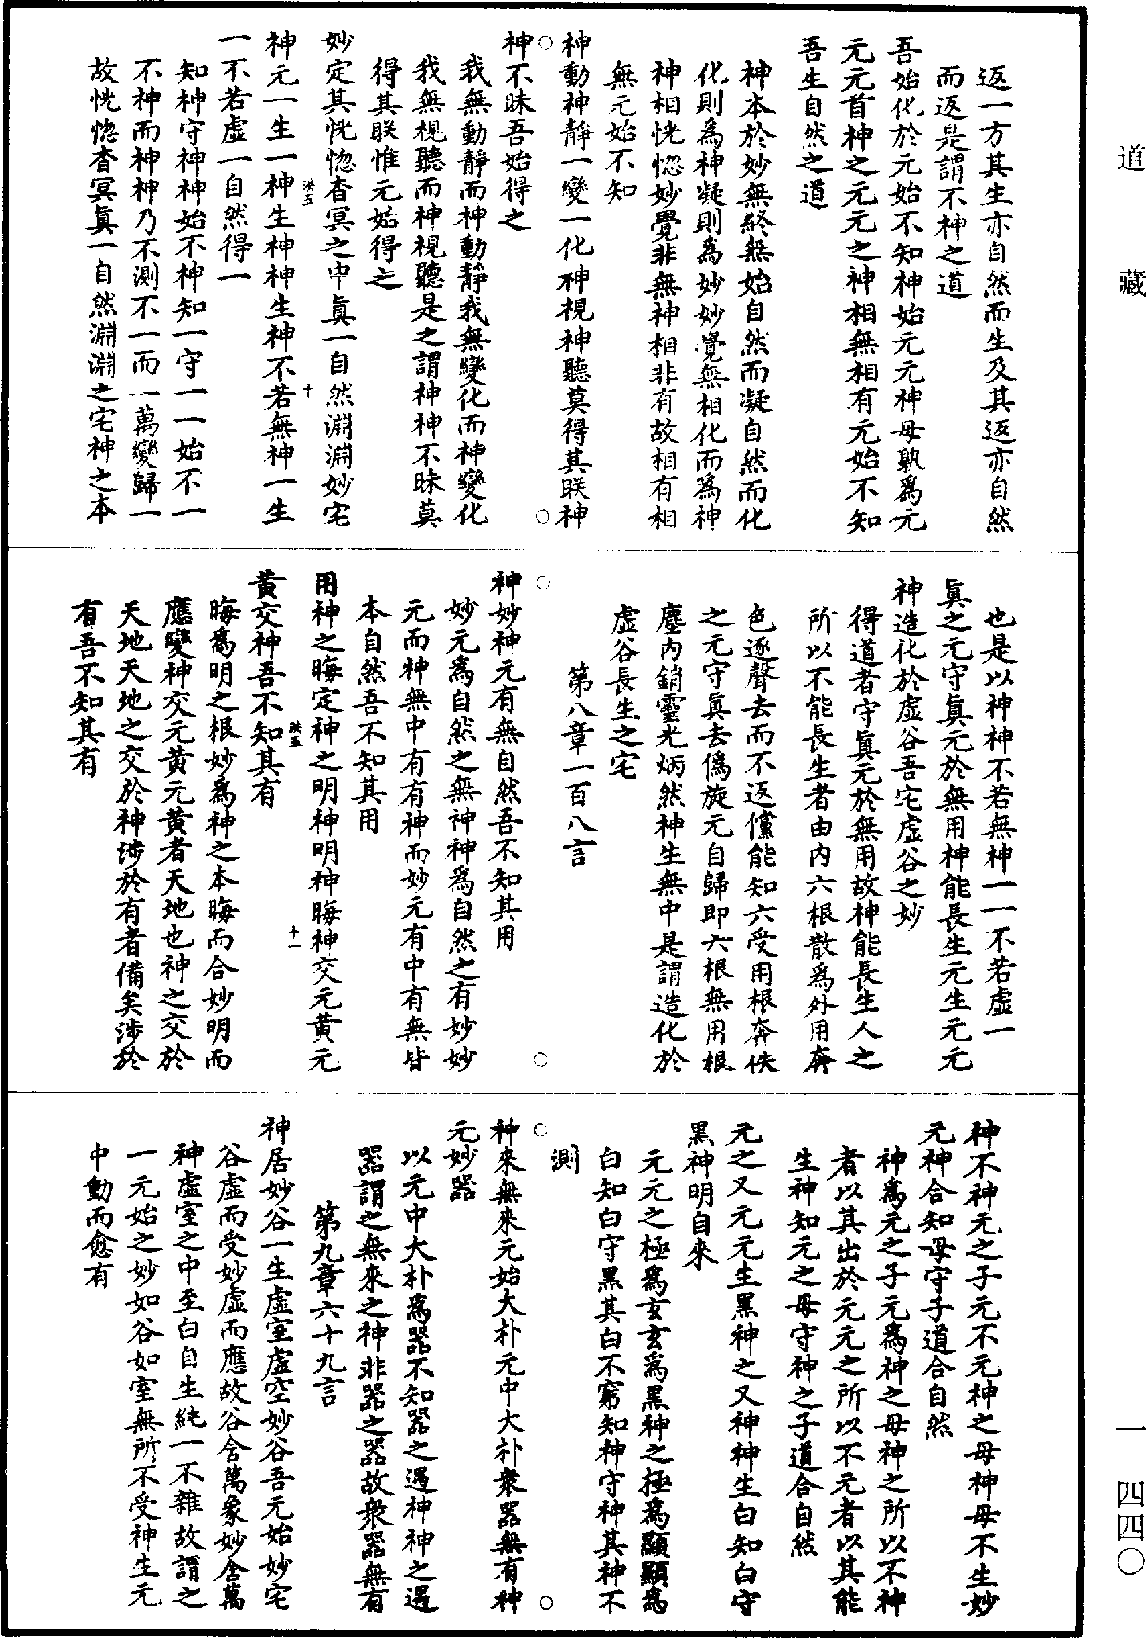 道藏
一四四〇
返一方其生亦自然而生及其返亦自然
而返是謂不神之道
吾始化於元始不知神始元元神母孰爲元
元元首神之元元之神相無相有元始不知
吾生自然之道
神本於妙無終無始自然而凝自然而化
化則爲神凝則爲妙妙覺無相化而爲神
神相恍惚妙覺非無神相非有故相有相
無元始不知
神動神靜一變一化神視神聽莫得其眹神
神不昧吾始得之
我無動靜而神動靜我無變化而神變化
我無視聽而神視聽是之謂神神不昧莫
得其眹惟元始得之
妙定其恍惚杳冥之中眞一自然淵淵妙宅
洪五
十
神元一生一神生神神生神不若無神一生
一不若虛一自然得一
知神守神神始不神知一守一一始不一
不神而神神乃不測不一而一萬變歸一
故恍惚杳冥眞一自然淵淵之宅神之本
也是以神神不若無神一一不若虛一
眞之元守眞元於無用神能長生元生元元
神造化於虛谷吾宅虛谷之妙
得道者守眞元於無用故神能長生人之
所以不能長生者由內六根散爲外用奔
色逐聲去而不返儻能知六受用根奔佚
之元守眞去僞旋元自歸即六根無用根
塵內銷靈光炳然神生無中是謂造化於
虛谷長生之宅
第八章一百八言
神妙神元有無自然吾不知其用
妙元爲自然之無神神爲自然之有妙妙
元而神無中有有神而妙元有中有無皆
本自然吾不知其用
用神之晦定神之明神明神晦神交元黃元
洪五
十一
黃交神吾不知其有
晦爲明之根妙爲神之本晦而合妙明而
應變神交元黃元黃者天地也神之交於
天地天地之交於神涉於有者備矣涉於
有吾不知其有
神不神元之子元不元神之母神母不生妙
元神合知母守子道合自然
神爲元之子元爲神之母神之所以不神
者以其出於元元之所以不元者以其能
生神知元之母守神之子道合自然
元之又元元生黑神之又神神生白知白守
黑神明自來
元元之極爲玄玄爲黑神之極爲顯顯爲
白知白守黑其白不窮知神守神其神不
測
神來無來元始大朴元中大朴衆器無有神
元妙器
以元中大朴爲器不知器之遇神神之遇
器謂之無來之神非器之器故衆器無有
第九章六十九言
神居妙谷一生虛室虛空妙谷吾元始妙宅
谷虛而受妙虛而應故谷含萬象妙含萬
神虛室之中至白自生純一不雜故謂之
一元始之妙如谷如室無所不受神生元
中動而愈有